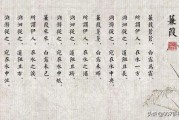 蒹葭
蒹葭蒼蒼 白露為霜
所謂伊人 在水一方
溯洄從之 道阻且長
溯游從之 宛在水中央
蒹葭萋萋 白露未晞
所謂伊人 在水之湄
溯洄從之 道阻且躋
溯游從之 宛在水中坻
蒹葭采采 白露未已
所謂伊人 在水之涘
溯洄從之 道阻且右
溯游從之 宛在水中沚